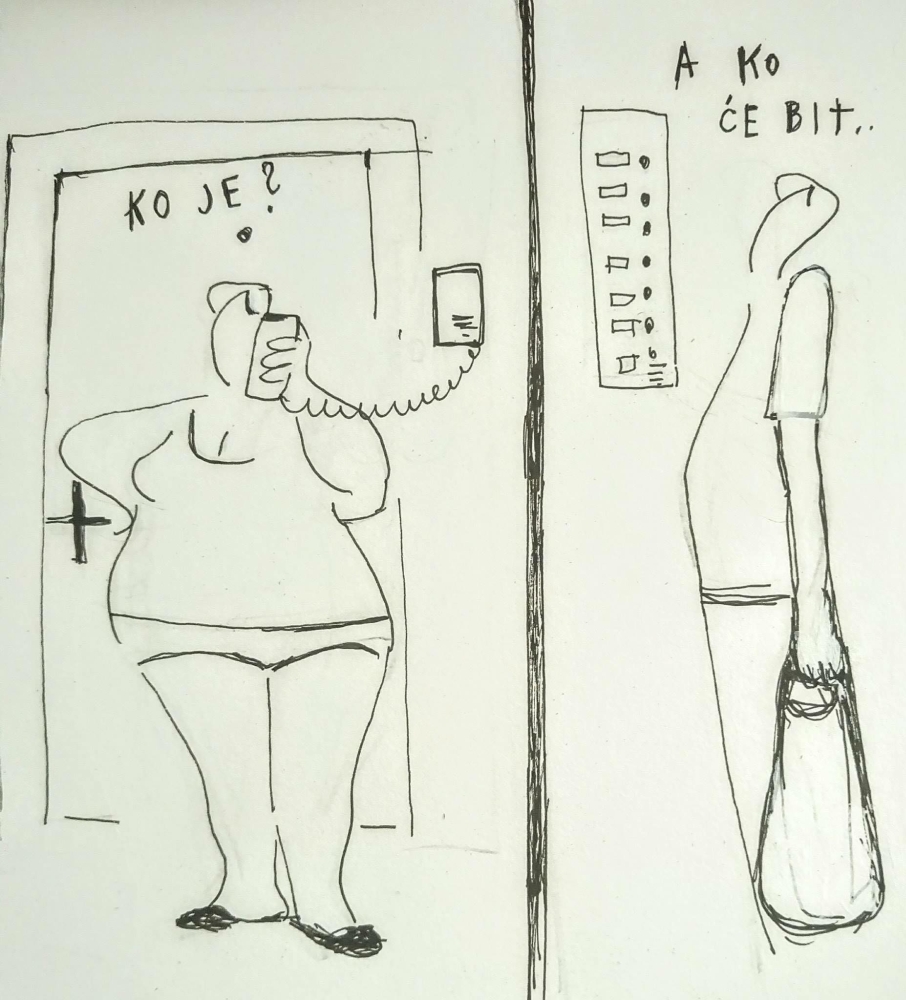 KO JE?
A KO
ĆE BIT..